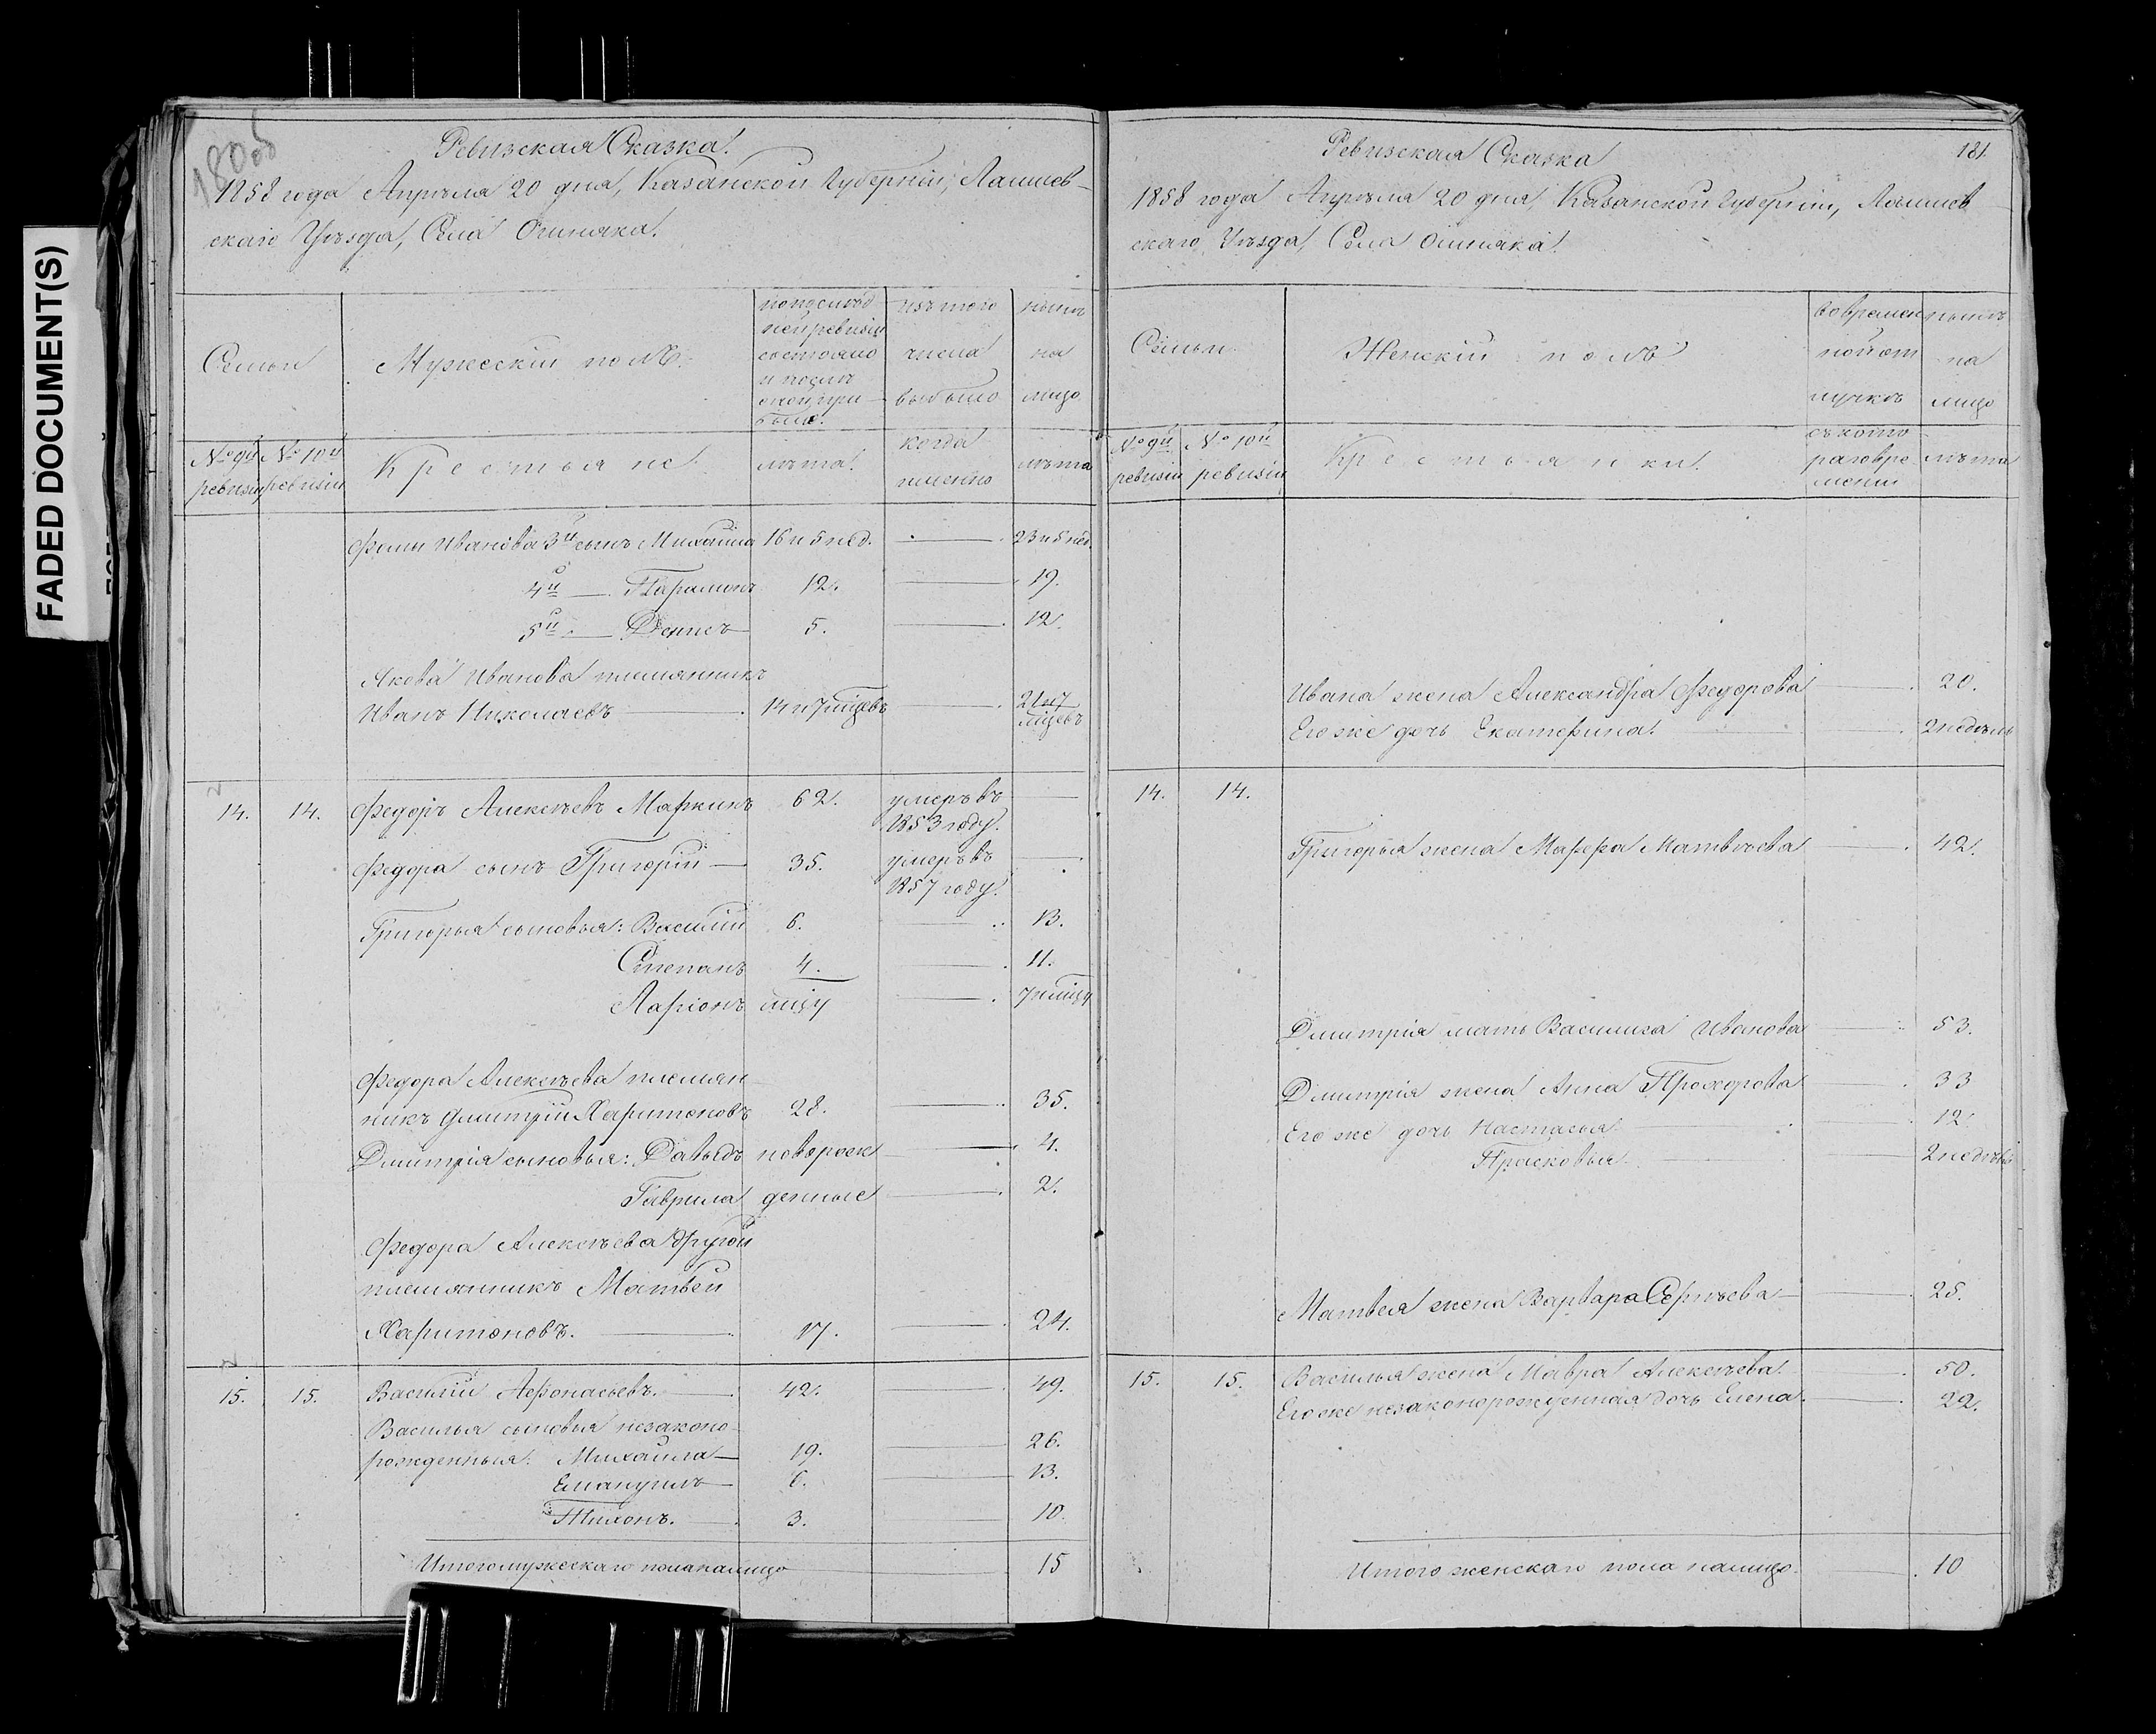 FADED DOCUMENT(S)
180об
Ревизская Сказка.
1858 года Апрѣля 20 дня, Казанской Губернiи, Лаишев-
скаго Уѣзда, Села Ошняка.
Семьи
Мужескiй полъ.
по послѣд
ней ревизiи
состояло
и послѣ
оной при-
было.
изъ того
числа
выбыло
нынѣ
на
лицо
№ 9й
ревизiи
№ 10й
ревизiи
Крестьяне
лѣта.
когда
именно
лѣта
Фомы Иванова 3й сынъ Михайла 16 и 5 нед. 23 и 5 нед.
4й Парамонъ 12. 19.
5й Денисъ 5. 12.
Якова Иванова племянникъ
Иванъ Николаевъ 14 и 7 мцевъ 21 и 7
мцевъ
14. 14. Федоръ Алексѣевъ Маркинъ 62. умеръ въ
1853 году.
Федора сынъ Григорiй 35. умеръ въ
1857 году.
Григорья сыновья: Василiй 6. 13.
Степанъ 4. 11.
Ларiонъ мцу 7 и мцу
Федора Алексѣева племян
никъ Дмитрiй Харитоновъ 28. 35.
Дмитрiя сыновья: Давыдъ новорож 4.
Гаврила денные 2.
Федора Алексѣева другой
племянникъ Матвей
Харитоновъ. 17. 24.
15. 15. Василiй Афонасьевъ. 42. 49.
Василья сыновья незаконо-
рожденныя: Михайла 19. 26.
Емануилъ 6. 13.
Тихонъ. 3. 10.
Итого мужескаго пола налицо 15
Ревизская Сказка 181.
1858 года Апрѣля 20 дня, Казанской Губернiи, Лаишев
скаго Уѣзда, Села Ошняка.
Семьи
Женскiй полъ
во времен
ной от
лучкѣ
нынѣ
на
лицо
№ 9й
ревизiи
№ 10й
ревизiи
Крестьянки.
съ кото-
раго вре-
мени
лѣта
Ивана жена Александра Федорова 20.
Его же дочь Екатерина. 2 недѣль
14. 14.
Григорья жена Марфа Матвѣева 42.
Дмитрiя мать Василиса Иванова 53.
Дмитрiя жена Анна Прохорова 33
Его же дочь Настасья 12.
Прасковья 2 недѣль
Матвея жена Варвара Сергѣева 25.
15. 15. Василья жена Мавра Алексѣева. 50.
Его же незаконорожденная дочь Елена. 22.
Итого женскаго пола налицо. 10